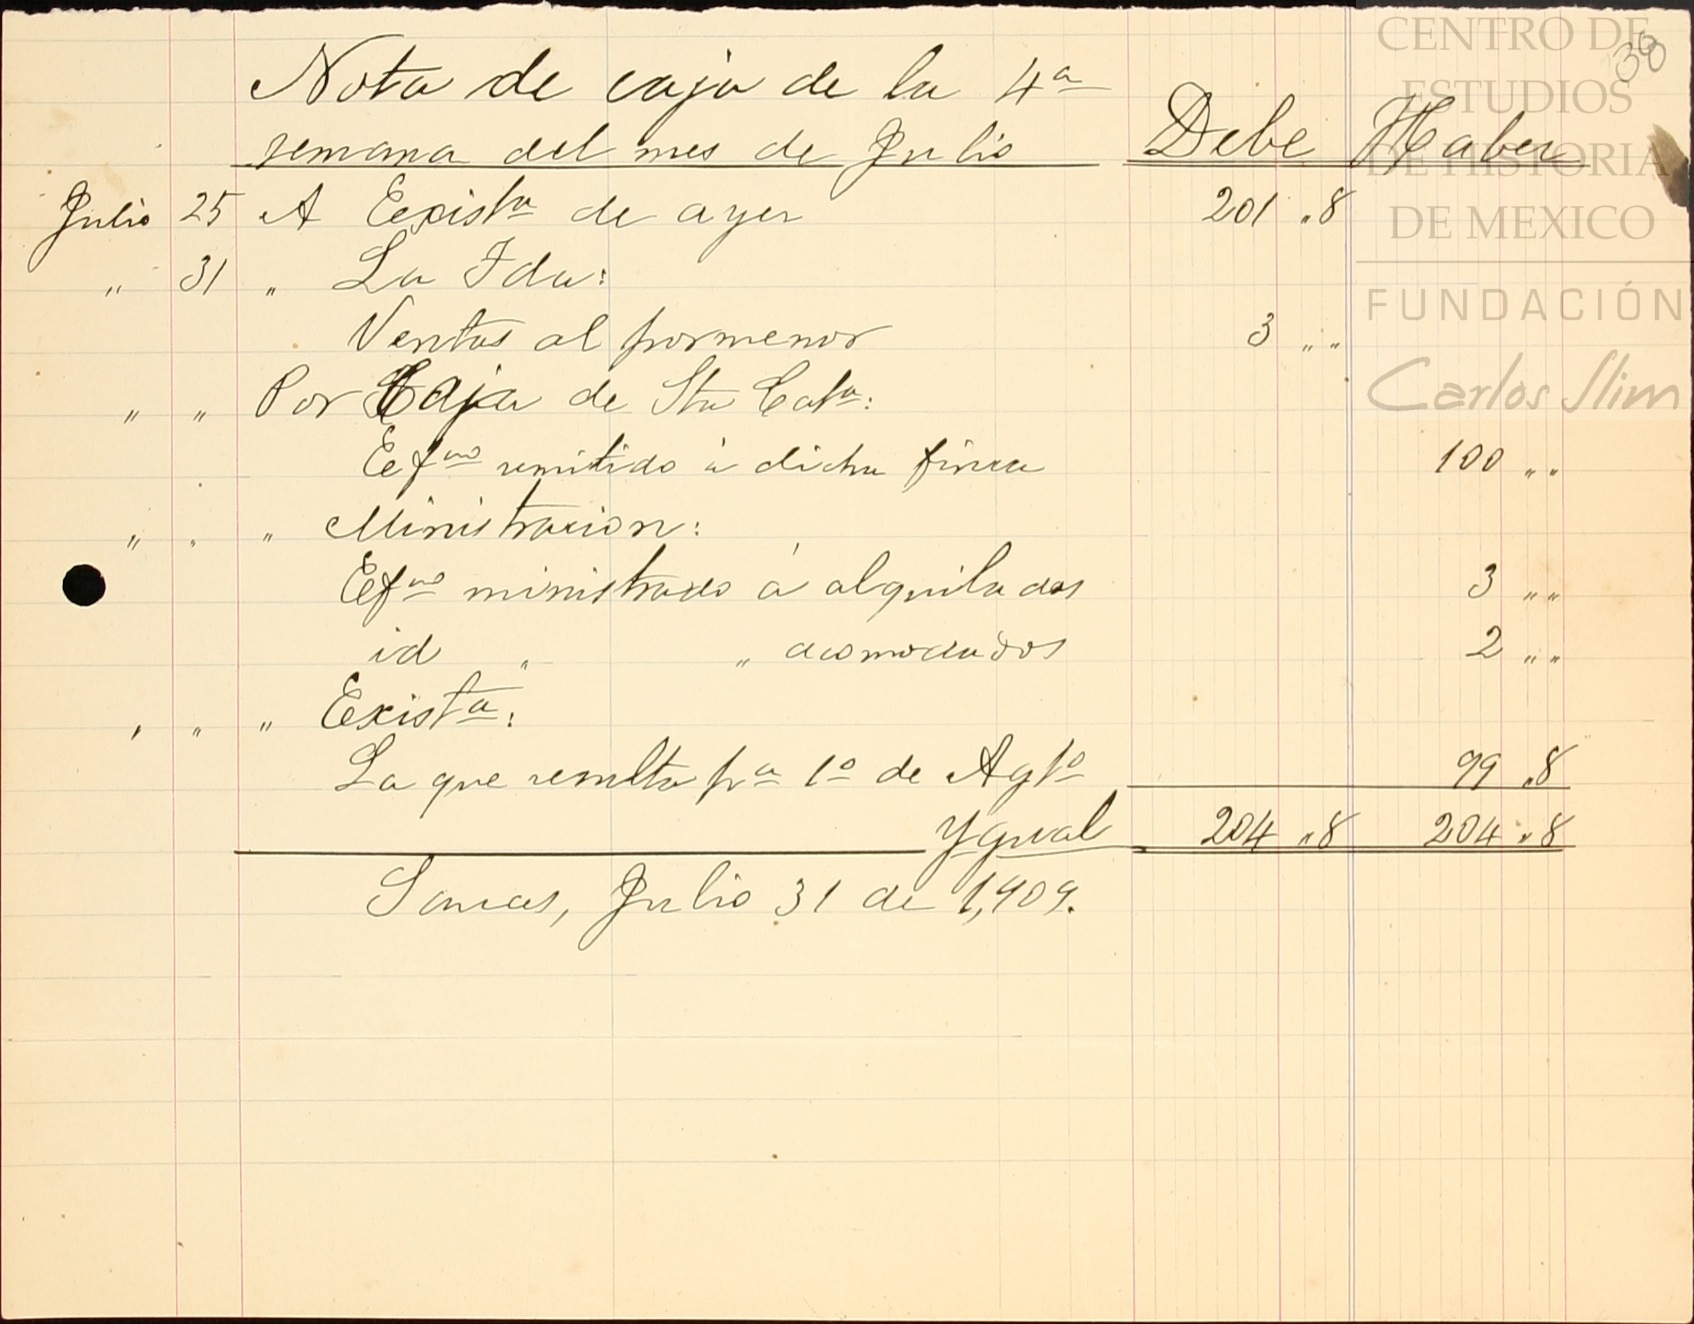 CENTRO DE
ESTUDIOS
DE HISTORIA
DE MEXICO
FUNDACIÓN
Carlos Slim
38
Nota de caja de la 4ª
semana del mes de Julio Debe Haber
Julio 25 A Existª de ayer 201 "8
" 31 " La Ida:
Ventas al pormenor 3 " "
" " Por Caja de Sta Catª:
Efvo remitido à dicha finca 100 " "
" " " Ministracion:
Efvo ministrado á alquilados 3 " "
id " " acomodados 2 " "
" " " Existª:
La que resulta pª 1º de Agtº 99 "8
Ygual 204 "8 204 "8
Julio 31 de 1,909.